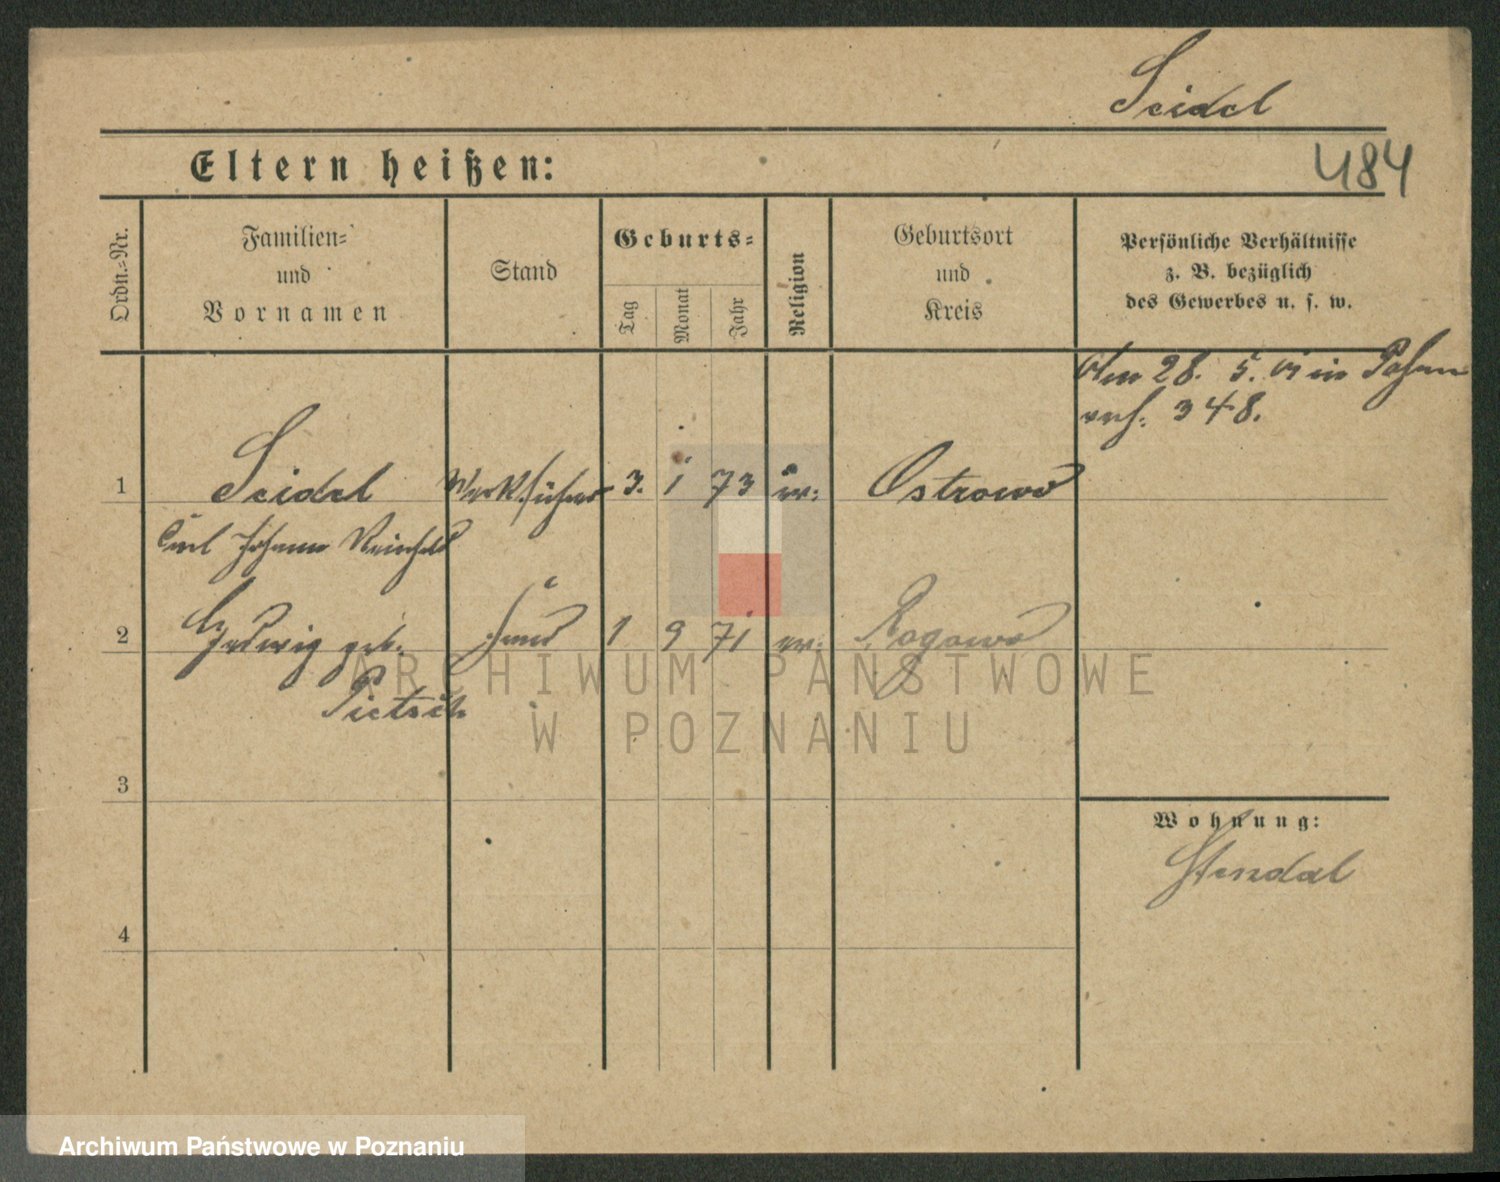 Seidel
Eltern heißen:
484
Ordn.-Nr.
Familien-
und
Vornamen
Stand
Geburts-
Tag
Monat
Jahr
Religion
Geburtsort
und
Kreis
Persönliche Verhältnisse
z. B. bezüglich
des Gewerbes u. s. w.
Am 28. 5. 01 in Posen
verh. 348.
1 Seidel Werkführer 3. 1 73 ev. Ostrowo
Carl Johann Reinhold
2 Hedwig geb. 1 9 71 ev. Rogowo
Pietsch
3
4
Wohnung:
Stendal
ARCHIWUM PAŃSTWOWE
W POZNANIU
Archiwum Państwowe w Poznaniu